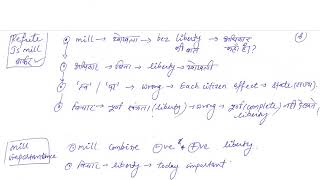 Refute
JS mill
mill → खोखला → bcz liberty → अधिकार
की बात नहीं है।?
अधिकार → बिना → liberty → खोखली
'स्व' / 'पर' → wrong → Each citizen effect → state (राज्य)
विचार → पूर्ण स्वतंत्रता (liberty) → wrong → पूर्ण (complete) नहीं
liberty
mill
importance
mill combine -ve & +ve liberty.
विचार → liberty → today important.